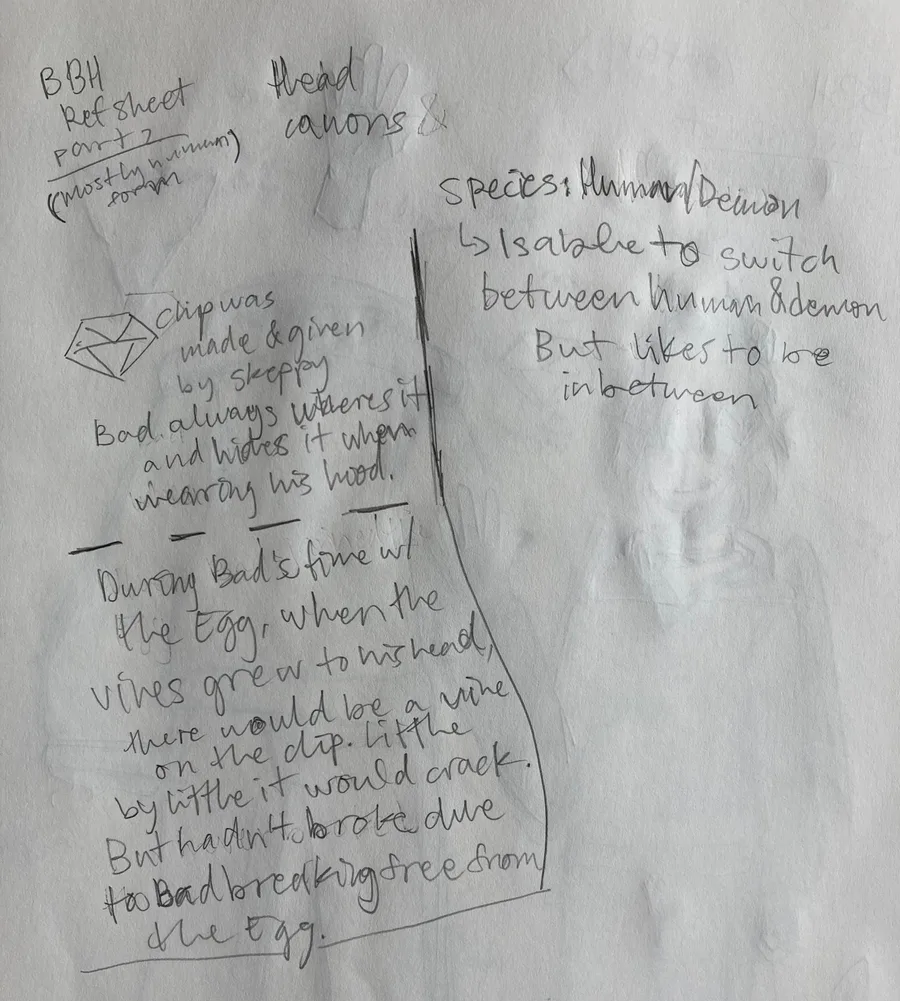 BBH
Ref sheet
part 2
(mostly human)
form
Head
canons &
Species: Human/Demon
↳ Is able to switch
between human & demon
But likes to be
inbetween
clip was
made & given
by skeppy
Bad always wheres it
and hides it when
wearing his hood.
During Bad's time w/
the Egg, when the
vines grew to his head,
there would be a vine
on the clip. Little
by little it would crack.
But hadn't broke due
to Bad breaking free from
the Egg.